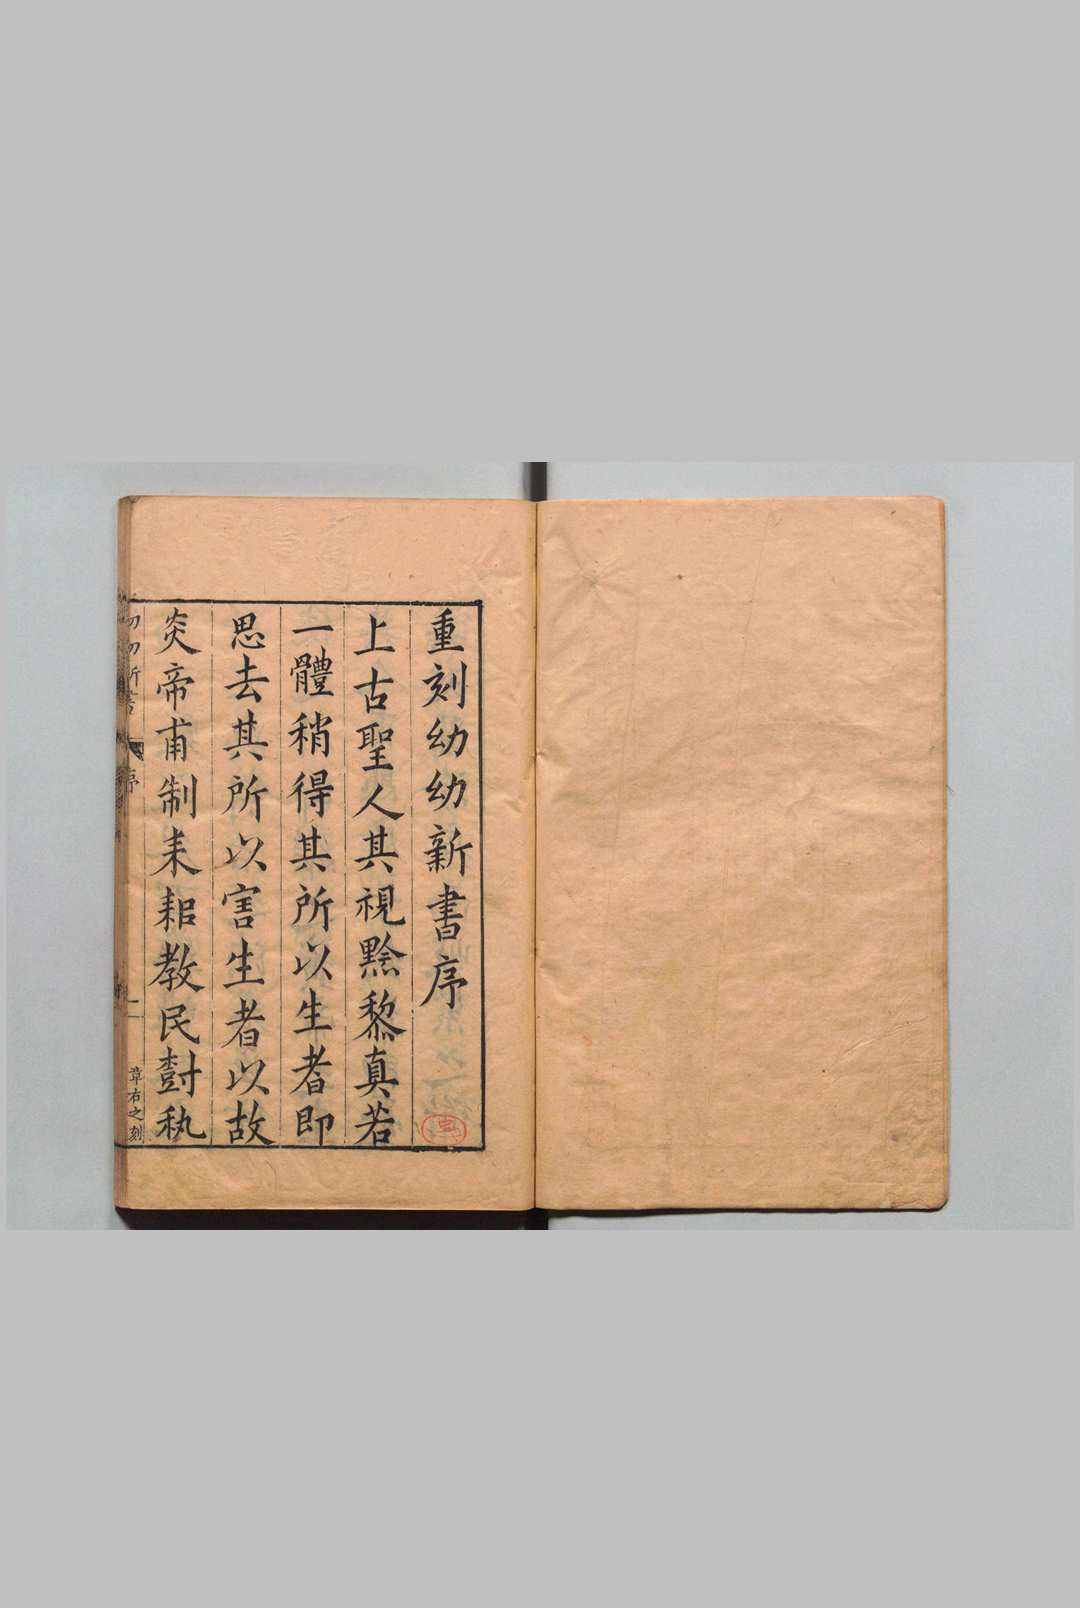 重刻幼幼新書序
上古聖人其視黔黎真若
一體稍得其所以生者即
思去其所以害生者以故
炎帝甫制耒耜教民樹秇
序
一
章右之刻